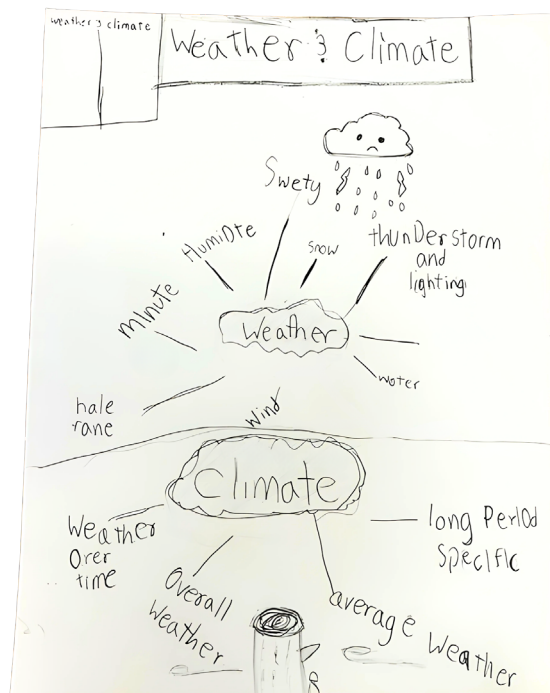 weather & climate
Weather & Climate
Swety
HumiDte
snow
thunDer storm
and
lighting
minute
Weather
woter
hale
rane
wind
Climate
Weather
Orer
time
long Period
specific
Overall
Weather
average Weather